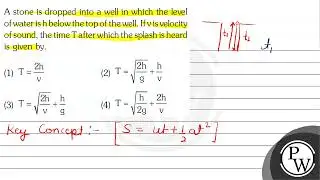 A stone is dropped into a well in which the level
of water is h below the top of the well. If v is velocity
of sound, the time T after which the splash is heard
is given by.
(1) T = 2h/v
(2) T = √(2h/g) + h/v
(3) T = √(2h/v) + h/g
(4) T = √(h/2g) + 2h/v
t₁ t₂ t₁
Key Concept :- [S = ut + 1/2 at²]
PW